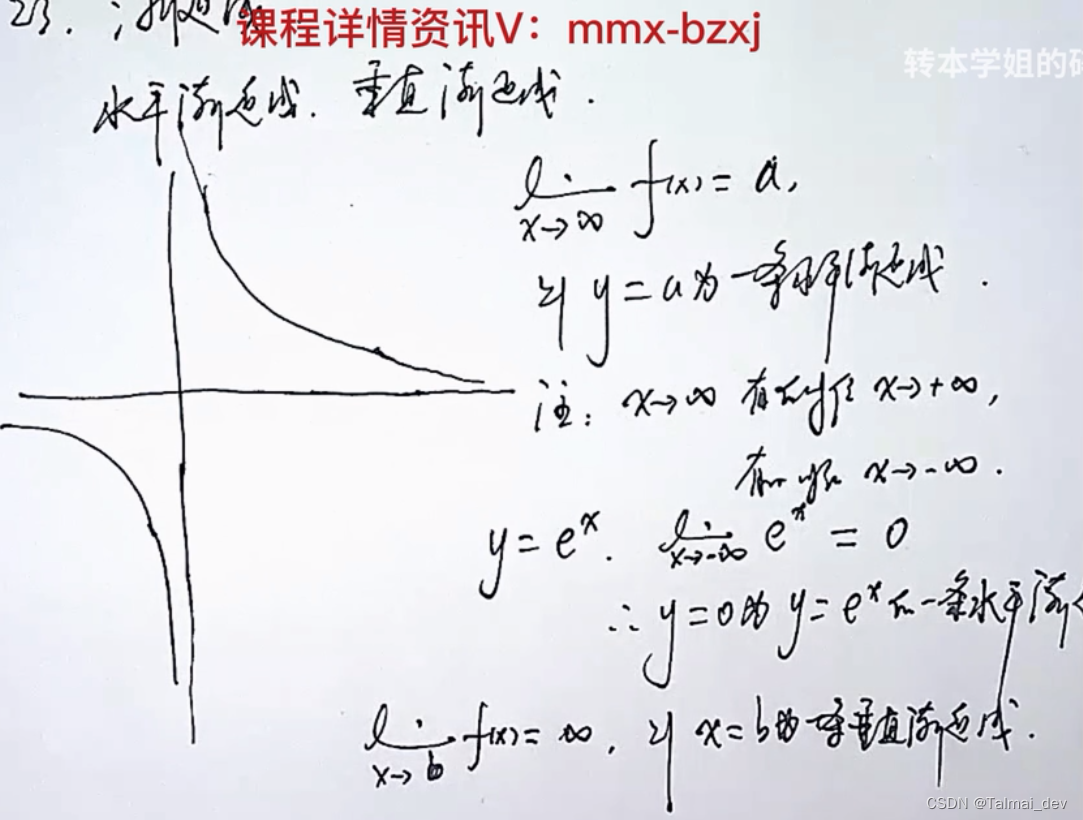 23. 渐近线
课程详情资讯V：mmx-bzxj
转本学姐的
水平渐近线. 垂直渐近线.
lim x→∞ f(x) = a,
则 y = a 为一条水平渐近线.
注: x→∞ 有时候仅 x→+∞,
有时候 x→-∞.
y = eˣ. lim x→-∞ eˣ = 0
∴ y = 0 为 y = eˣ 的一条水平渐
lim x→b f(x) = ∞, 则 x = b 为一条垂直渐近线.
CSDN @Talmai_dev